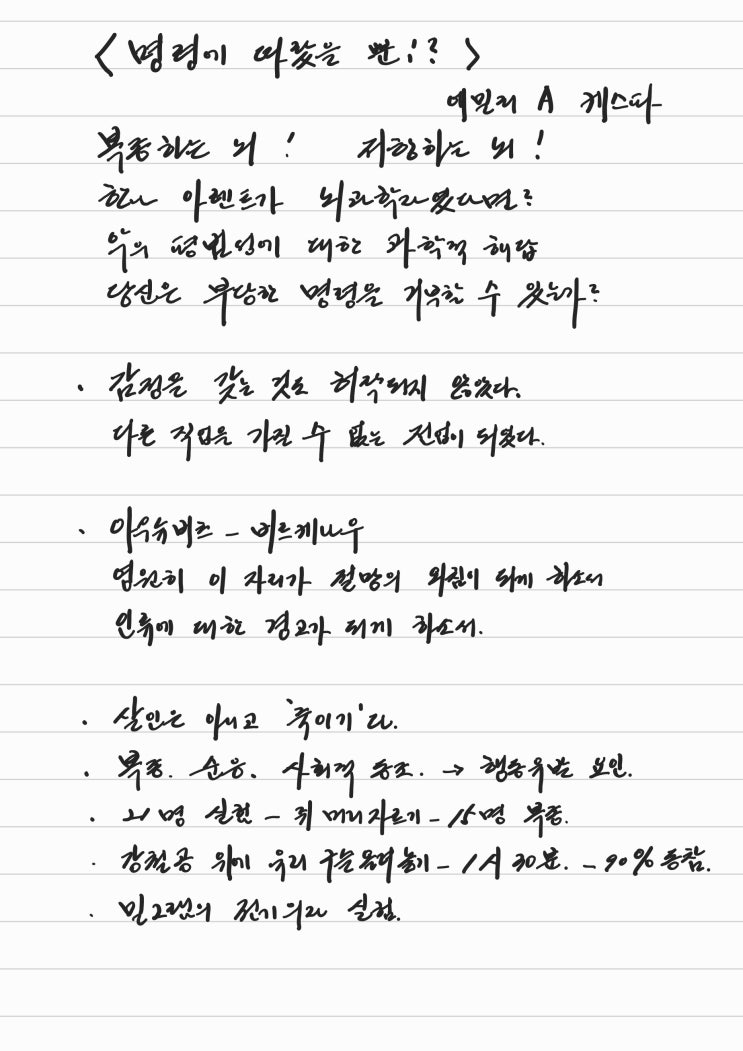 < 명령에 따랐을 뿐!? >
에밀리 A 캐스파
복종하는 뇌 ! 저항하는 뇌 !
한나 아렌트가 뇌과학자였다면?
악의 평범성에 대한 과학적 해답
당신은 부당한 명령을 거부할 수 있는가?
· 감정을 갖는 것도 허락되지 않았다.
다른 직업을 가질 수 없는 전업이 되었다.
· 아우슈비츠 - 비르케나우
영원히 이 자리가 절망의 외침이 되게 하소서
인류에 대한 경고가 되게 하소서.
· 살인은 아니고 '죽이기'다.
· 복종. 순응. 사회적 동조. → 행동유발 요인.
· 21명 실험 - 쥐 머리자르기 - 15명 복종.
· 강철공 위에 유리 구슬 올려놓기 - 1시 30분. - 90% 동참.
· 밀그램의 전기의자 실험.